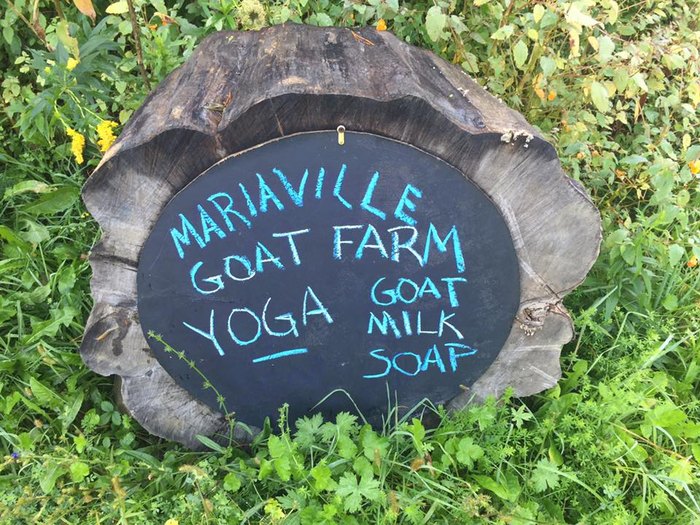 MARIAVILLE
GOAT FARM
YOGA
GOAT
MILK
SOAP